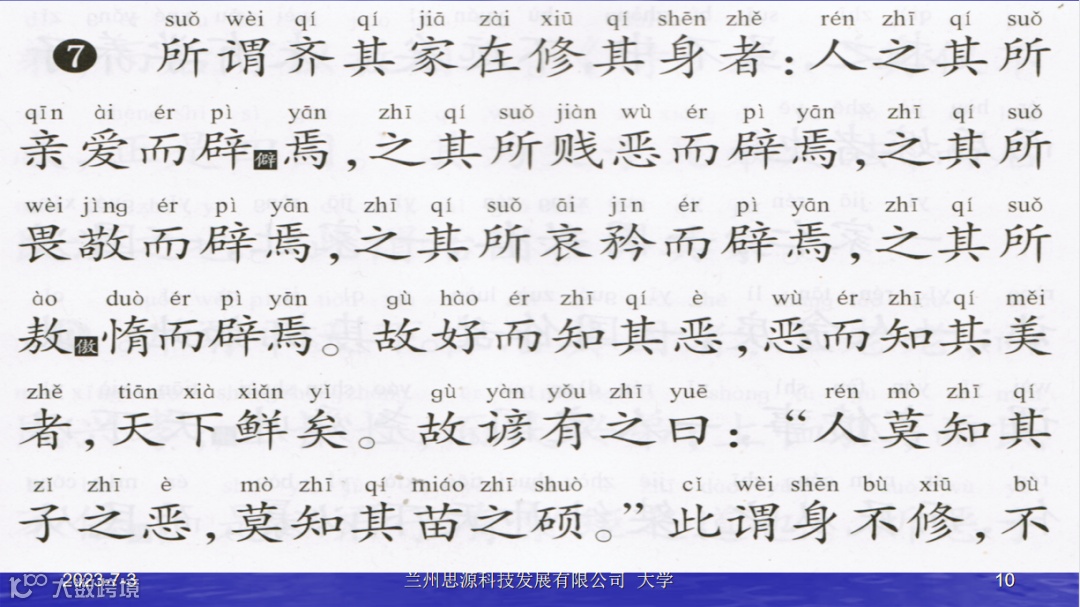 suǒ wèi qí qí jiā zài xiū qí shēn zhě rén zhī qí suǒ
7 所谓斋其家在修其身者:人之其所
qīn ài ér pì yān zhī qí suǒ jiàn wù ér pì yān zhī qí suǒ
亲爱而辟僻焉,之其所贱恶而辟焉,之其所
wèi jìng ér pì yān zhī qí suǒ āi jīn ér pì yān zhī qí suǒ
畏敬而辟焉,之其所哀矜而辟焉,之其所
ào duò ér pì yān gù hào ér zhī qí è wù ér zhī qí měi
敖傲惰而辟焉。故好而知其恶,恶而知其美
zhě tiān xià xiǎn yǐ gù yàn yǒu zhī yuē rén mò zhī qí
者,天下鲜矣。故谚有之曰:“人莫知其
zǐ zhī è mò zhī qí miáo zhī shuò cǐ wèi shēn bù xiū bù
子之恶,莫知其苗之硕。”此谓身不修,不
2023-7-3 兰州思源科技发展有限公司 大学 10
大数跨境